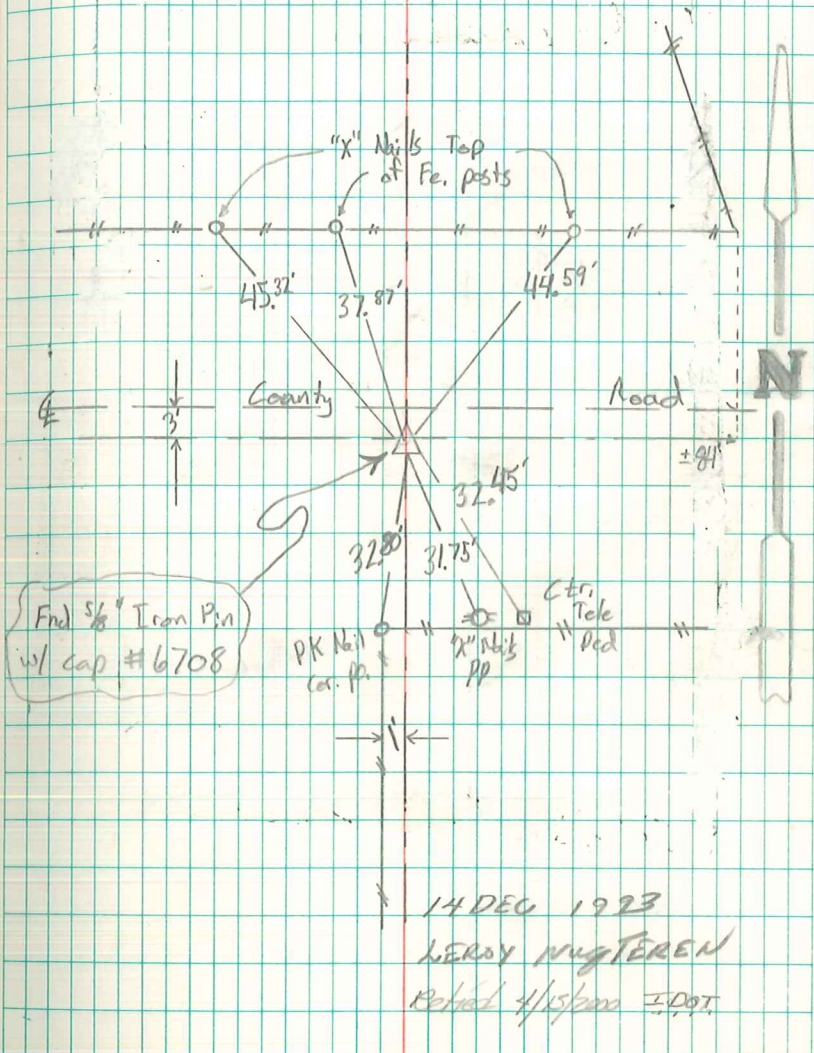 "X" Nails Top
of Fe. posts
45.32'
37.87'
44.59'
N
℄ County Road
3'
±84'
32.45'
32.80'
31.75'
Fnd 5/8" Iron Pin
w/ cap #6708
Ctr.
Tele
Ped
PK Nail
cor. po.
"X" Nails
PP
1'
14 DEC
LEROY NugTEREN
Retied 4/15/2000 I.DOT